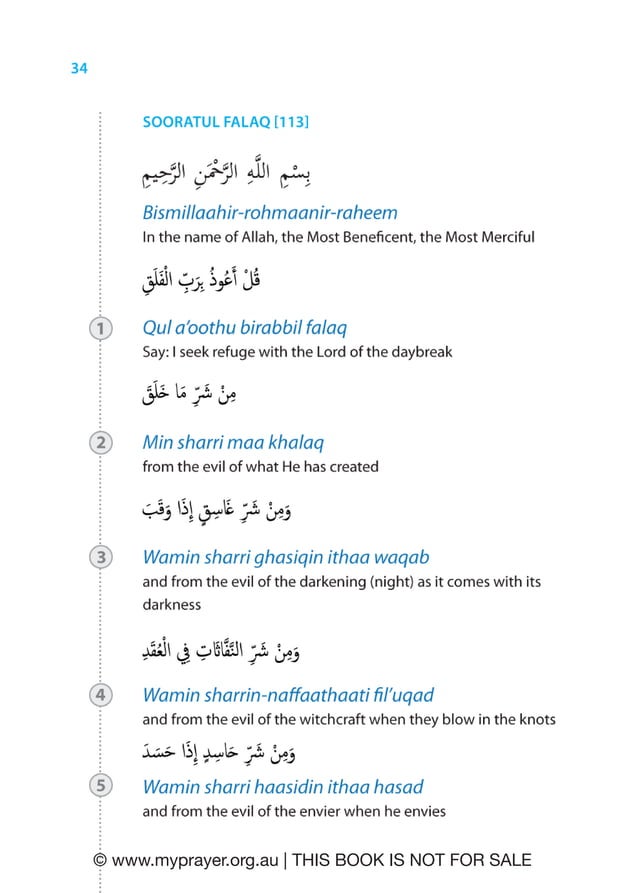 34
SOORATUL FALAQ [113]
بِسْمِ اللَّهِ الرَّحْمَنِ الرَّحِيمِ
Bismillaahir-rohmaanir-raheem
In the name of Allah, the Most Beneficent, the Most Merciful
قُلْ أَعُوذُ بِرَبِّ الْفَلَقِ
1 Qul a’oothu birabbil falaq
Say: I seek refuge with the Lord of the daybreak
مِنْ شَرِّ مَا خَلَقَ
2 Min sharri maa khalaq
from the evil of what He has created
وَمِنْ شَرِّ غَاسِقٍ إِذَا وَقَبَ
3 Wamin sharri ghasiqin ithaa waqab
and from the evil of the darkening (night) as it comes with its
darkness
وَمِنْ شَرِّ النَّفَّاثَاتِ فِي الْعُقَدِ
4 Wamin sharrin-naffaathaati fil’uqad
and from the evil of the witchcraft when they blow in the knots
وَمِنْ شَرِّ حَاسِدٍ إِذَا حَسَدَ
5 Wamin sharri haasidin ithaa hasad
and from the evil of the envier when he envies
© www.myprayer.org.au | THIS BOOK IS NOT FOR SALE